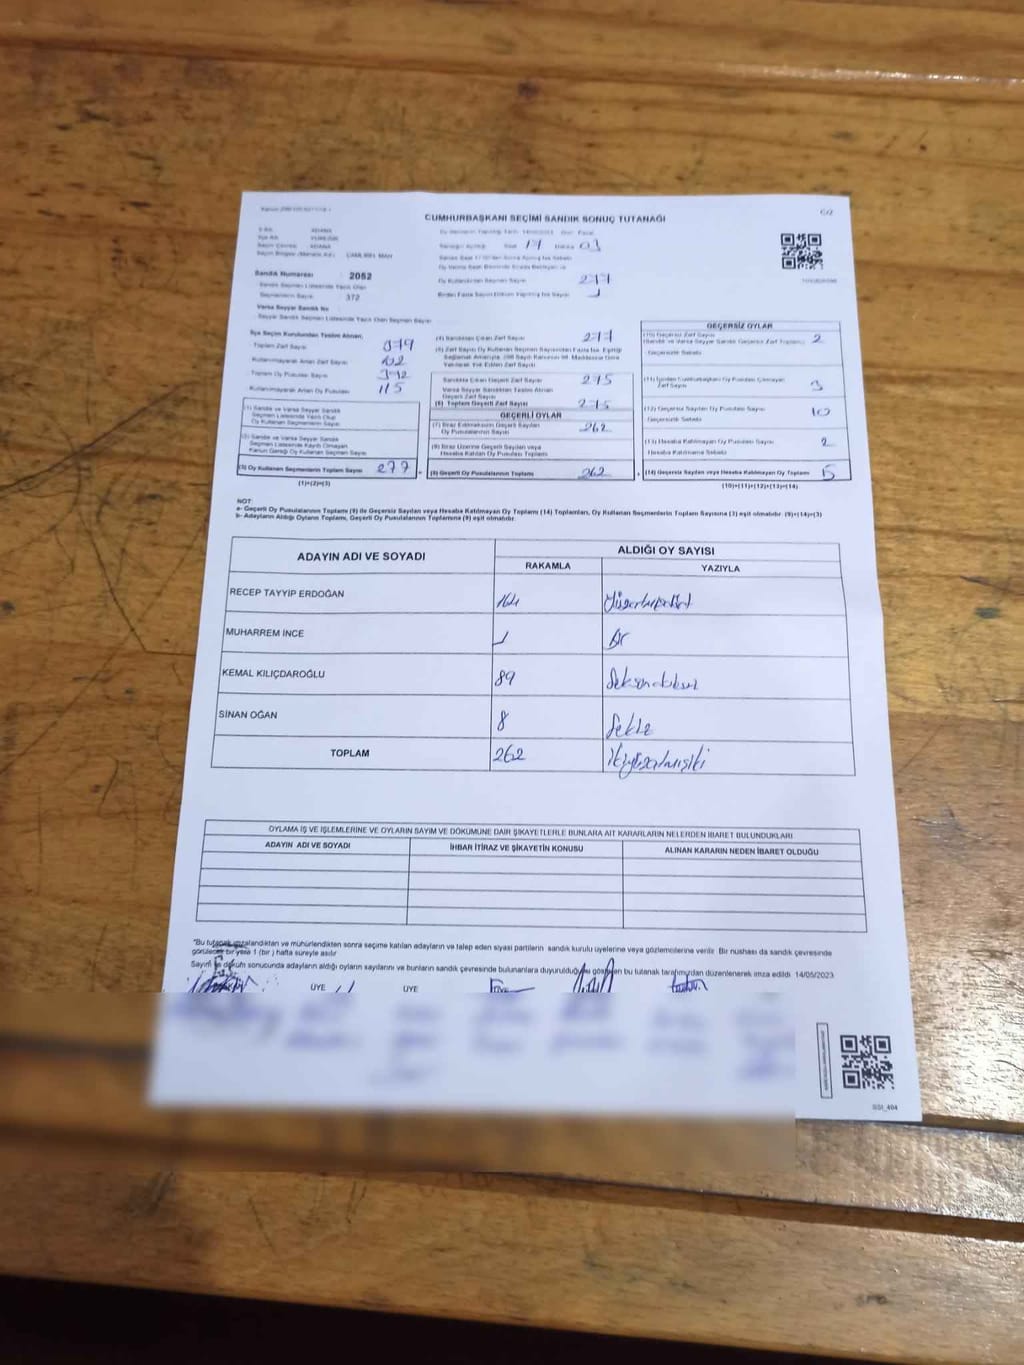 C/2
CUMHURBAŞKANI SEÇİMİ SANDIK SONUÇ TUTANAĞI
ADANA
Sandık Numarası 2052
Sandık Seçmen Listesinde Yazılı Olan
Seçmenlerin Sayısı 372
Saat 17 Dakika 03
Oy Kullandırılan Seçmen Sayısı 277
İlçe Seçim Kurulundan Teslim Alınan;
Toplam Zarf Sayısı
Kullanılmayarak Artan Zarf Sayısı 102
Toplam Oy Pusulası Sayısı
Kullanılmayarak Artan Oy Pusulası 115
(1) Sandık ve Varsa Seyyar Sandık
Seçmen Listesinde Yazılı Olup
Oy Kullanan Seçmenlerin Sayısı
(2) Sandık ve Varsa Seyyar Sandık
Seçmen Listesinde Kayıtlı Olmayan
Kanun Gereği Oy Kullanan Seçmenlerin Sayısı
(3) Oy Kullanan Seçmenlerin Toplam Sayısı 277
(1)+(2)=(3)
(4) Sandıktan Çıkan Zarf Sayısı 277
Sandıkta Çıkan Geçerli Zarf Sayısı 275
Varsa Seyyar Sandıktan Teslim Alınan
Geçerli Zarf Sayısı
(6) Toplam Geçerli Zarf Sayısı 275
GEÇERLİ OYLAR
(7) İtiraz Edilmeksizin Geçerli Sayılan
Oy Pusulalarının Sayısı 262
(8) İtiraz Üzerine Geçerli Sayılan veya
Hesaba Katılan Oy Pusulaları Toplamı
(9) Geçerli Oy Pusulalarının Toplamı 262
GEÇERSİZ OYLAR
(10) Geçersiz Zarf Sayısı
(Sandık ve Varsa Seyyar Sandık Geçersiz Zarf Toplamı) 2
Geçersizlik Sebebi
(11) İçinden Cumhurbaşkanı Oy Pusulası Çıkmayan
Zarf Sayısı 3
(12) Geçersiz Sayılan Oy Pusulası Sayısı 10
Geçersizlik Sebebi
(13) Hesaba Katılmayan Oy Pusulası Sayısı 2
Hesaba Katılmama Sebebi
(14) Geçersiz Sayılan veya Hesaba Katılmayan Oy Toplamı
(10)+(11)+(12)+(13)=(14)
NOT:
a- Geçerli Oy Pusulalarının Toplamı (9) ile Geçersiz Sayılan veya Hesaba Katılmayan Oy Toplamı (14) Toplamları, Oy Kullanan Seçmenlerin Toplam Sayısına (3) eşit olmalıdır. (9)+(14)=(3)
b- Adayların Aldığı Oyların Toplamı, Geçerli Oy Pusulalarının Toplamına (9) eşit olmalıdır.
ADAYIN ADI VE SOYADI ALDIĞI OY SAYISI
RAKAMLA YAZIYLA
RECEP TAYYİP ERDOĞAN 164
MUHARREM İNCE 1 Bir
KEMAL KILIÇDAROĞLU 89 Seksendokuz
SİNAN OĞAN 8 Sekiz
TOPLAM 262 ikiyüzatmışiki
OYLAMA İŞ VE İŞLEMLERİNE VE OYLARIN SAYIM VE DÖKÜMÜNE DAİR ŞİKAYETLERLE BUNLARA AİT KARARLARIN NELERDEN İBARET BULUNDUKLARI
ADAYIN ADI VE SOYADI İHBAR İTİRAZ VE ŞİKAYETİN KONUSU ALINAN KARARIN NEDEN İBARET OLDUĞU
"Bu tutanak imzalandıktan ve mühürlendikten sonra seçime katılan adayların ve talep eden siyasi partilerin sandık kurulu üyelerine veya gözlemcilerine verilir. Bir nüshası da sandık çevresinde
görülecek bir yere 1 (bir) hafta süreyle asılır
Sayım ve döküm sonucunda adayların aldığı oyların sayılarını ve bunların sandık çevresinde bulunanlara duyurulduğunu gösteren bu tutanak tarafımızdan düzenlenerek imza edildi. 14/05/2023
ÜYE ÜYE